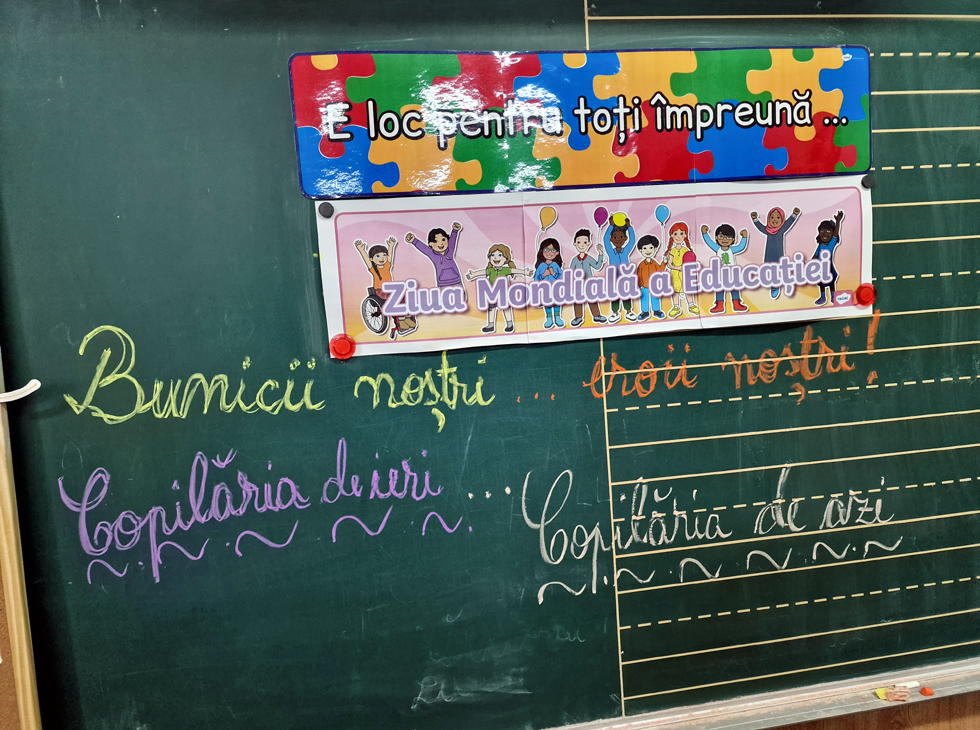 E loc pentru toți împreună ...
Ziua Mondială a Educației
Bunicii noștri ... eroii noștri!
Copilăria de ieri ... Copilăria de azi